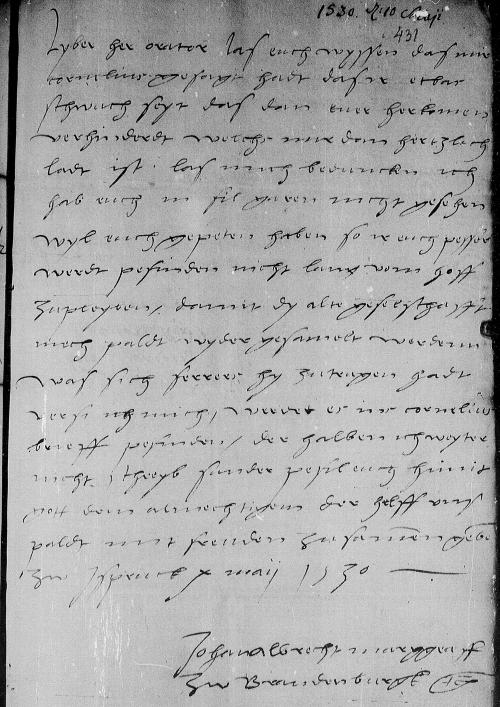 1530. 10 Maji
431
Lyber her orator las euch wyssen das mir
cornelius gesagt hadt das ir etbas
schwach seyt das dan euer herkomen
verhinderdt welchs mir dan hertzlich
ladt ist las mich beduncken ich
hab euch in fil jaren nicht gesehen
wyl euch gepeten haben so ir euch pesser
werdt pefinden nicht lang vom hoff
zupleyben / damit dy alte geselschafft
mech paldt wyder gesamelt werdenn
was sich ferrers hy zutragen hadt
versi ich mich / werdet es in cornelius
brieff pefinden / der halben ich weyter
nicht schreyb sunder pefil euch himit
gott dem almechtigen der helff uns
paldt mit freuden zusamen geben
zw Ispruck x maij 1530
Johan albrecht marggraff
zw Brandenburgk